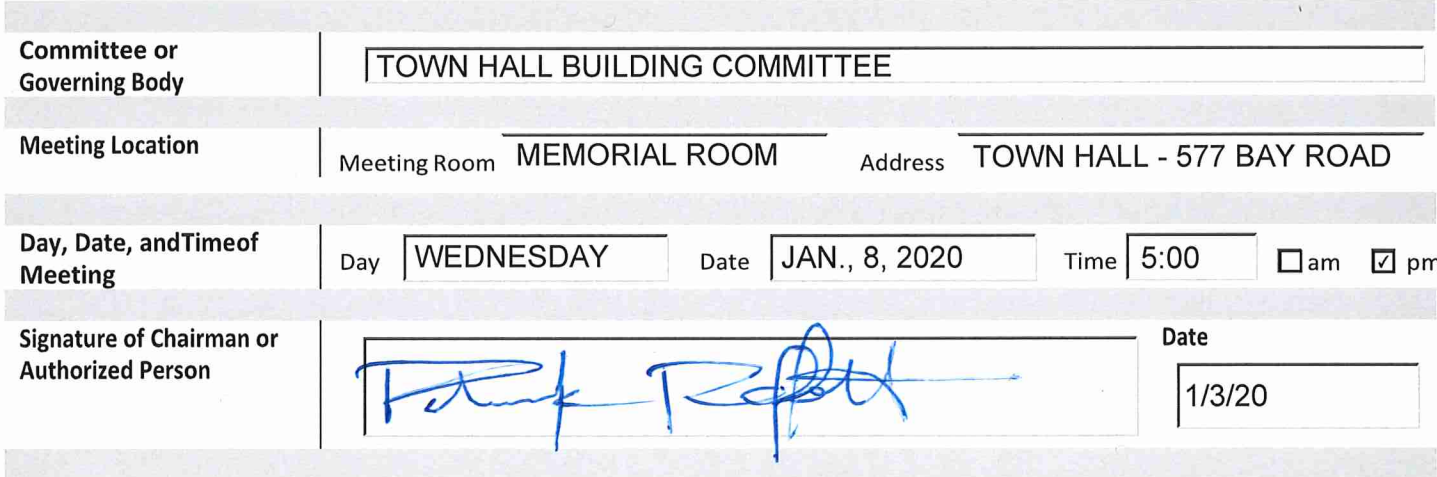 Committee or
Governing Body
TOWN HALL BUILDING COMMITTEE
Meeting Location
Meeting Room MEMORIAL ROOM Address TOWN HALL - 577 BAY ROAD
Day, Date, andTimeof
Meeting
Day WEDNESDAY Date JAN., 8, 2020 Time 5:00 am pm
Signature of Chairman or
Authorized Person
Date
1/3/20